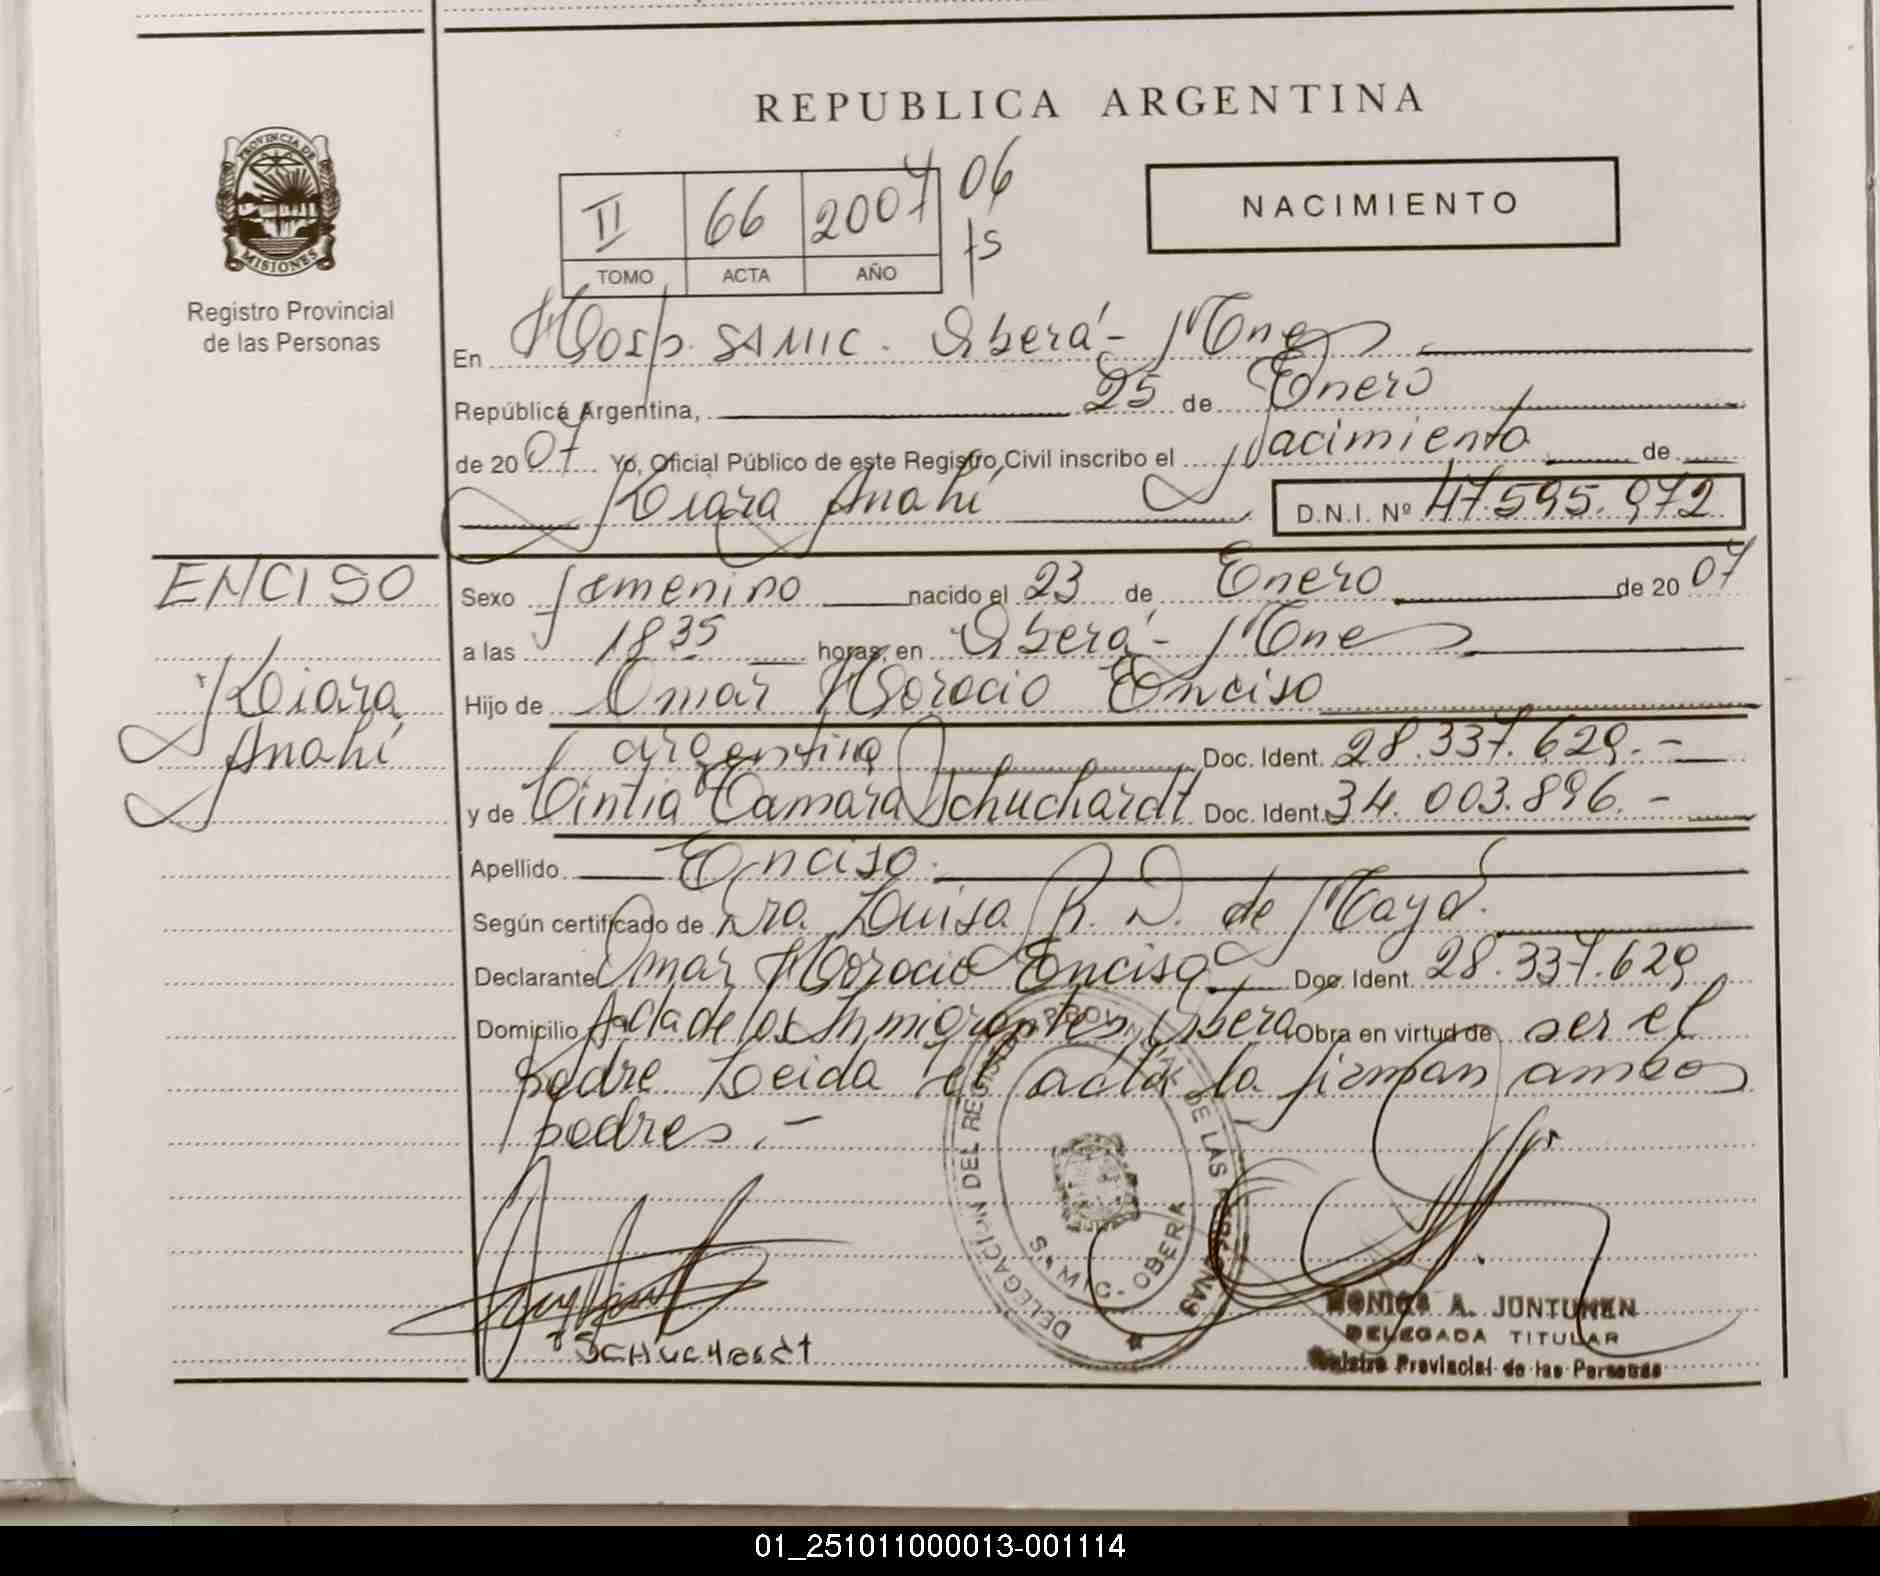 REPUBLICA ARGENTINA
PROVINCIA DE MISIONES
Registro Provincial
de las Personas
II 66 2007 06
TOMO ACTA AÑO fs
NACIMIENTO
En Hosp. SAMIC. Oberá - Mnes
República Argentina, 25 de Enero
de 2007 Yo, Oficial Público de este Registro Civil inscribo el Nacimiento de
Kiara Anahí D.N.I. Nº 47.595.972
ENCISO
Kiara
Anahí
Sexo femenino nacido el 23 de Enero de 2007
a las 18 35 horas, en Oberá - Mnes
Hijo de Omar Horacio Enciso
argentina Doc. Ident. 28.337.629.-
y de Cintia Tamara Schuchardt Doc. Ident. 34.003.896.-
Apellido Enciso.
Según certificado de Dra. Luisa R. D. de
Declarante Omar Horacio Enciso Doc. Ident. 28.337.629
Domicilio Avda de los Inmigrantes Oberá Obra en virtud de ser el
padre Leida el acta la firman ambos
padres.-
DELEGACION DEL REGISTRO PROVINCIAL DE LAS PERSONAS
S.A.M.I.C. - OBERA
SCHUCHARDT
MONICA A. JUNTUNEN
DELEGADA TITULAR
Registro Provincial de las Personas
01_251011000013-001114